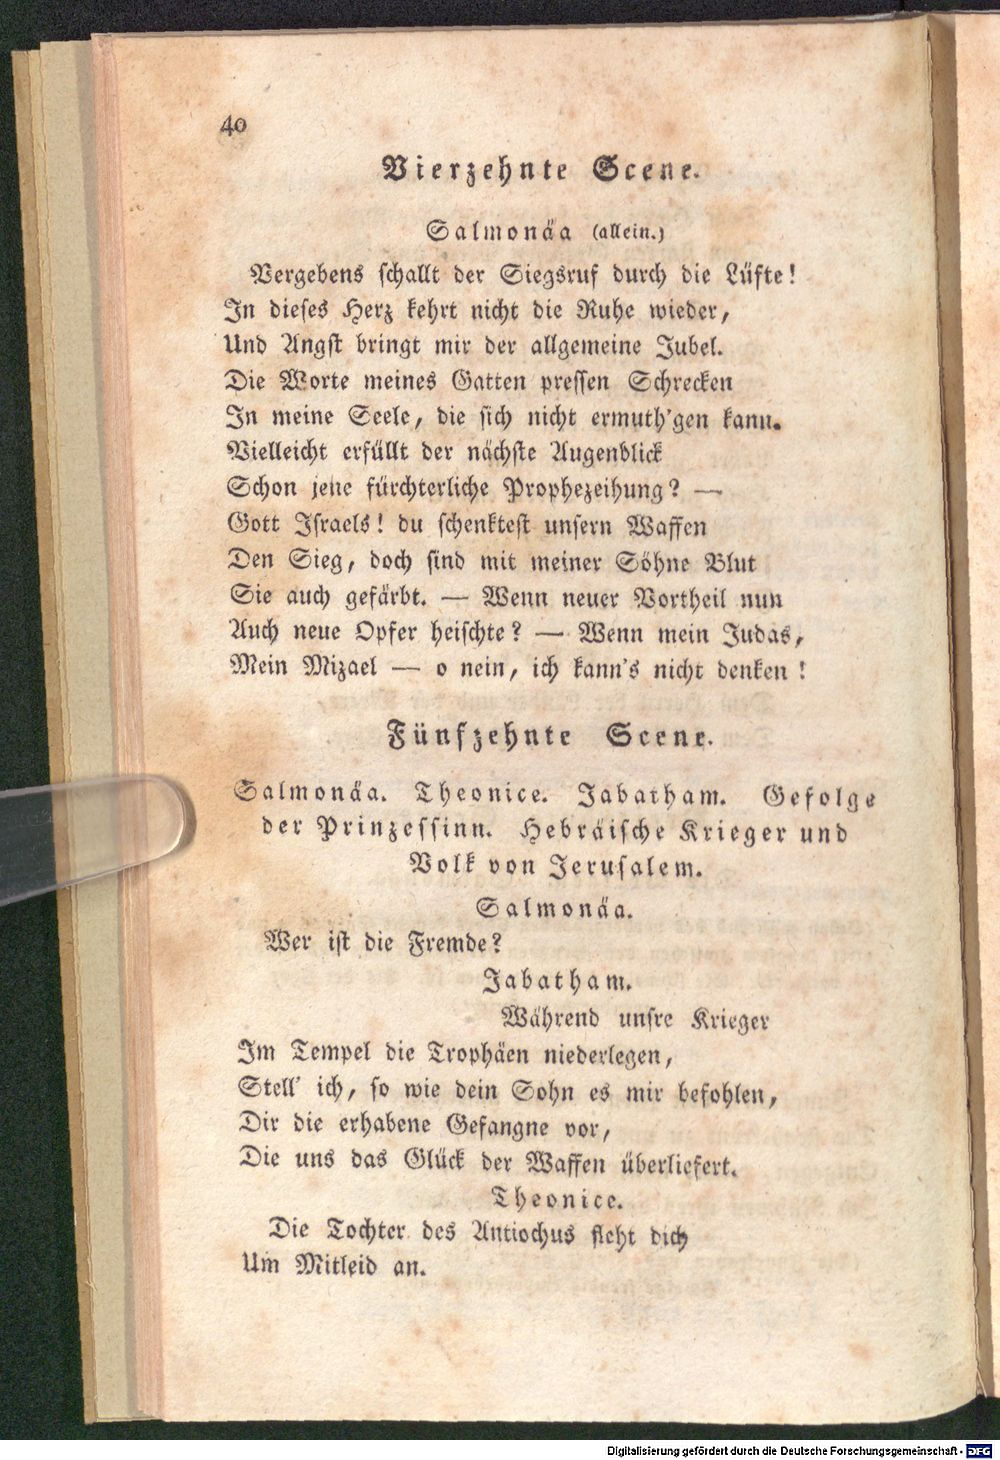 40
Vierzehnte Scene.
Salmonäa (allein.)
Vergebens schallt der Siegsruf durch die Lüfte!
In dieses Herz kehrt nicht die Ruhe wieder,
Und Angst bringt mir der allgemeine Jubel.
Die Worte meines Gatten pressen Schrecken
In meine Seele, die sich nicht ermuth'gen kann.
Vielleicht erfüllt der nächste Augenblick
Schon jene fürchterliche Prophezeihung? —
Gott Israels! du schenktest unsern Waffen
Den Sieg, doch sind mit meiner Söhne Blut
Sie auch gefärbt. — Wenn neuer Vortheil nun
Auch neue Opfer heischte? — Wenn mein Judas,
Mein Mizael — o nein, ich kann's nicht denken!
Fünfzehnte Scene.
Salmonäa. Theonice. Jabatham. Gefolge
der Prinzessinn. Hebräische Krieger und
Volk von Jerusalem.
Salmonäa.
Wer ist die Fremde?
Jabatham.
Während unsre Krieger
Im Tempel die Trophäen niederlegen,
Stell' ich, so wie dein Sohn es mir befohlen,
Dir die erhabene Gefangne vor,
Die uns das Glück der Waffen überliefert.
Theonice.
Die Tochter des Antiochus fleht dich
Um Mitleid an.
Digitalisierung gefördert durch die Deutsche Forschungsgemeinschaft - DFG